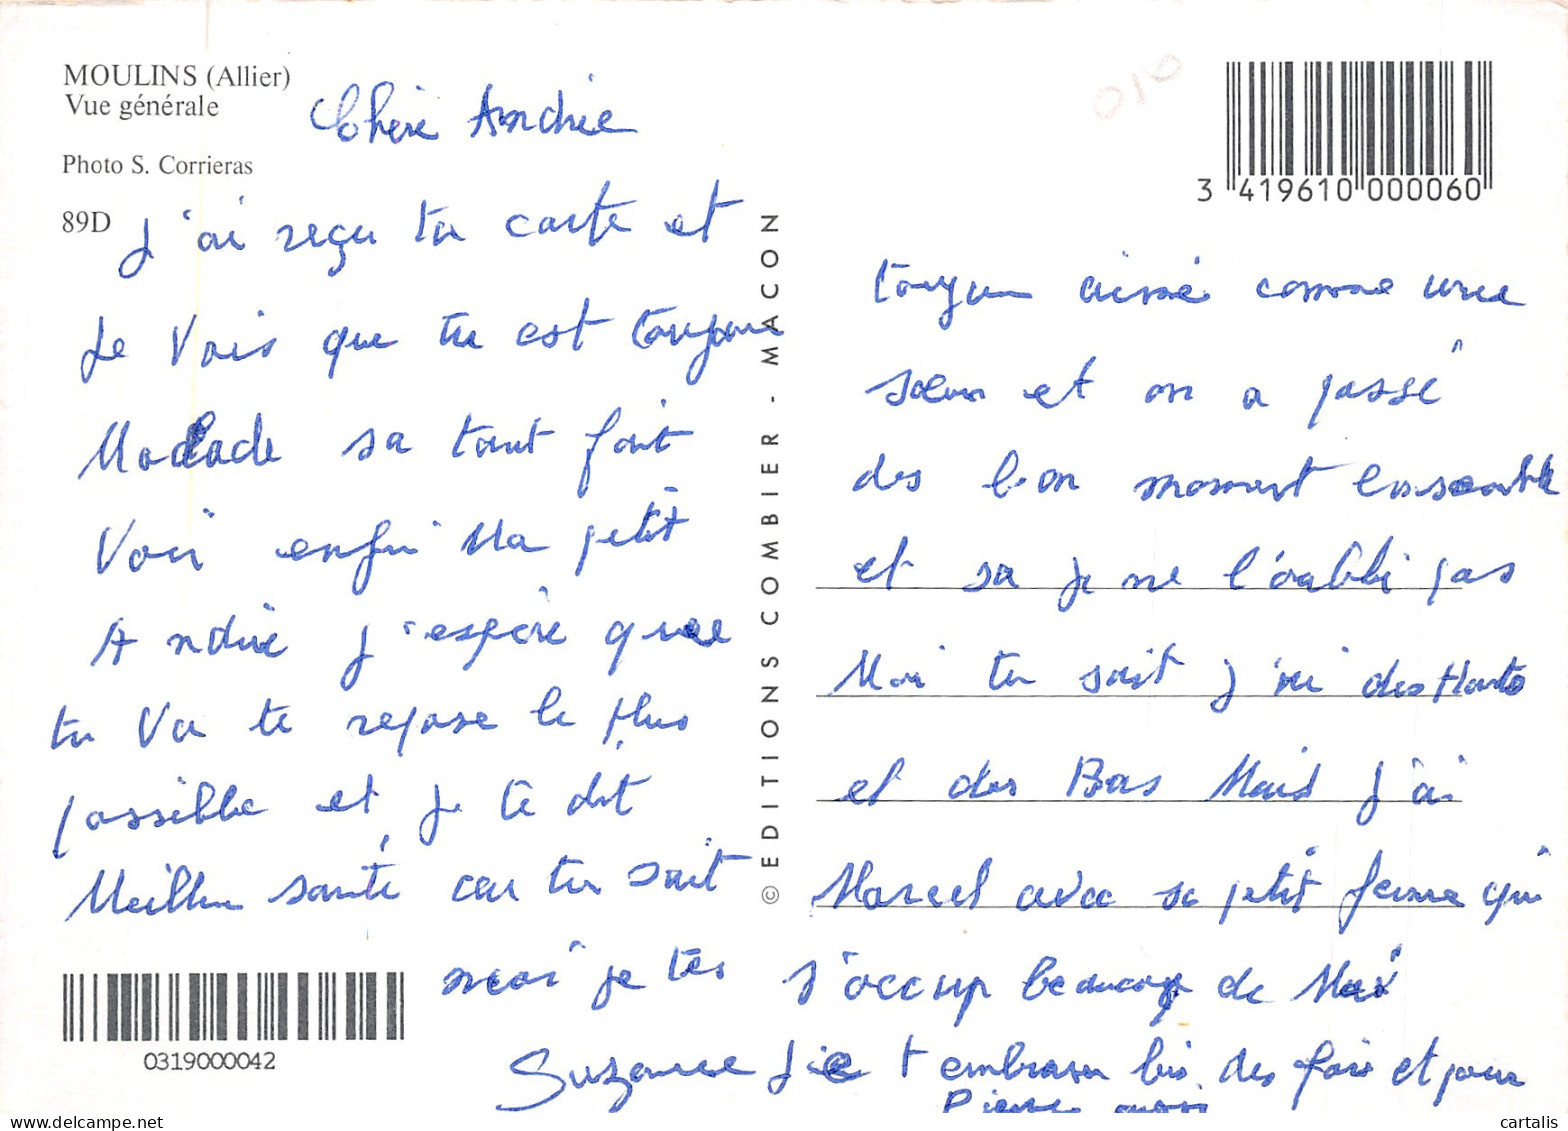 MOULINS (Allier)
Vue générale
Photo S. Corrieras
89D
Chère Andrée
J'ai reçu ta carte et
Je Vois que tu est toujours
Malade sa tout fait
Voir enfin Ma petit
Andrée j'espère que
tu Va te repose le plus
possible et je te dit
Meilleu santé car tu sait
moi je tes
© EDITIONS COMBIER - MACON
3 419610 000060
toujours aimé comme une
sœur et on a passé
des bon moment ensemble
et sa je ne l'oubli pas
Moi tu sait j'ai des Hauts
et des Bas Mais j'ai
Marcel avec sa petit femme qui
s'occup beaucoup de Moi
Suzanne t embrasse bis des fois et pour
Pierre aussi
0319000042
cartalis